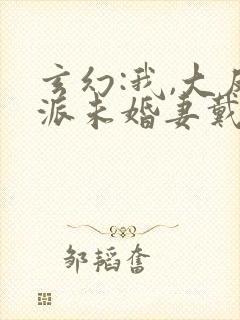 玄幻:我,大反
派未婚妻戴
邹韬奋